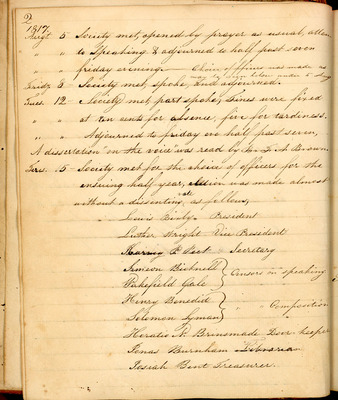 2
1817.
Augt 5 Society met, opened by prayer as usual, atten
" " to Speaking & adjourned to half past seven
" " friday evening. — Choice of officers was made as
may be seen below under 5 day
Friday 8 Society met, spoke, and adjourned.
Tues. 12 Society met, part spoke, Fines were fixed
" " at ten cents for absence, five for tardiness.
" " Adjourned to friday eve half past seven,
A dissertation on the voice was read by S. A. Brown.
Tues. 5 Society met for the choice of officers for the
ensuing half year, was made almost
without a dissenting vote as follows,
Lewis President
Luther Wright Vice President
Secretary
Simeon Bicknell } Censors in speaking
Wakefield Gale
Henry Benedict } " Composition
Solomon Lyman
Horatio N. Brinsmade Door keeper
Jonas Burnham Librarian
Josiah Bent Treasurer.